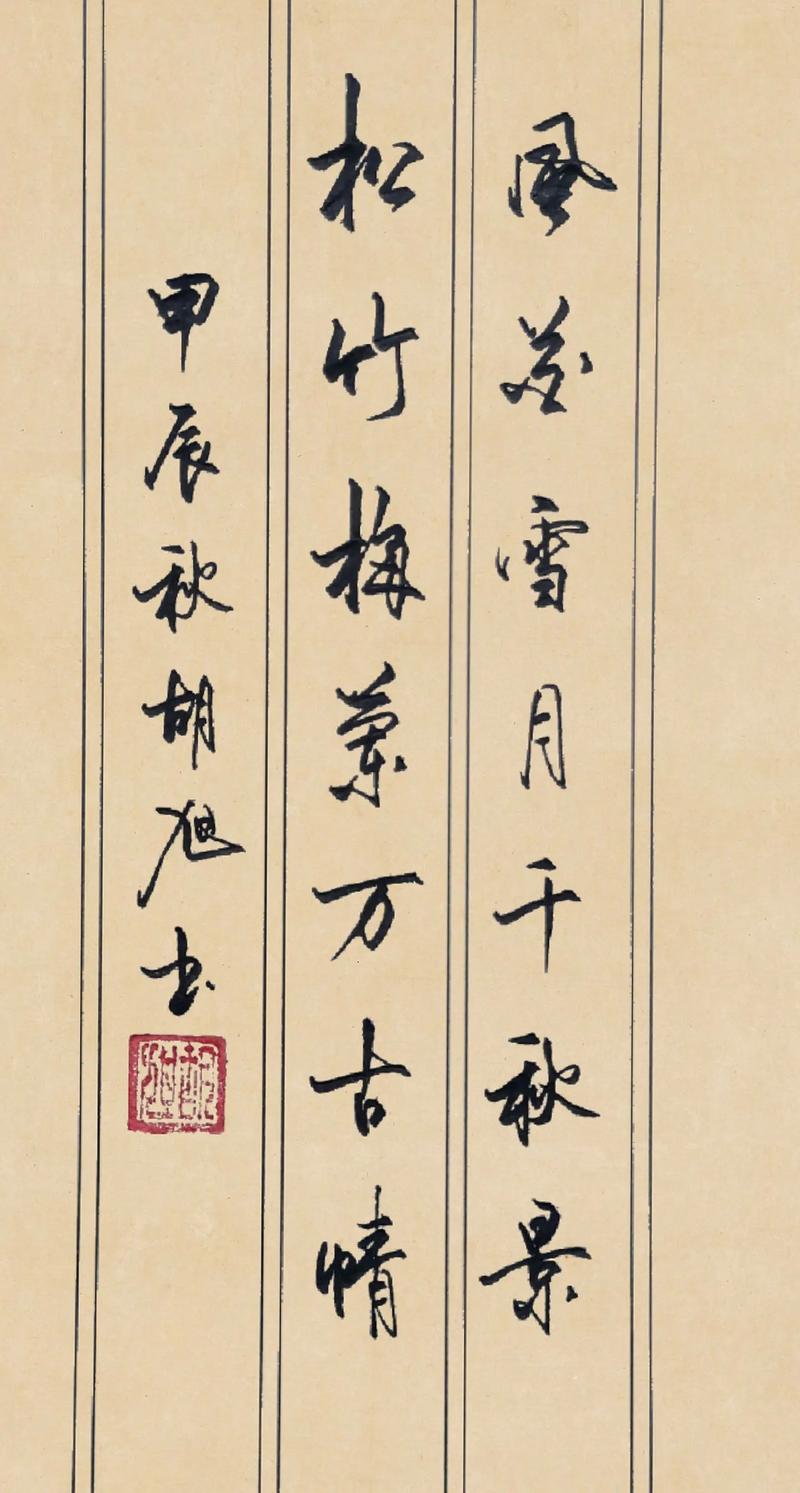 风花雪月千秋景
松竹梅兰万古情
甲辰秋胡旭书
胡旭